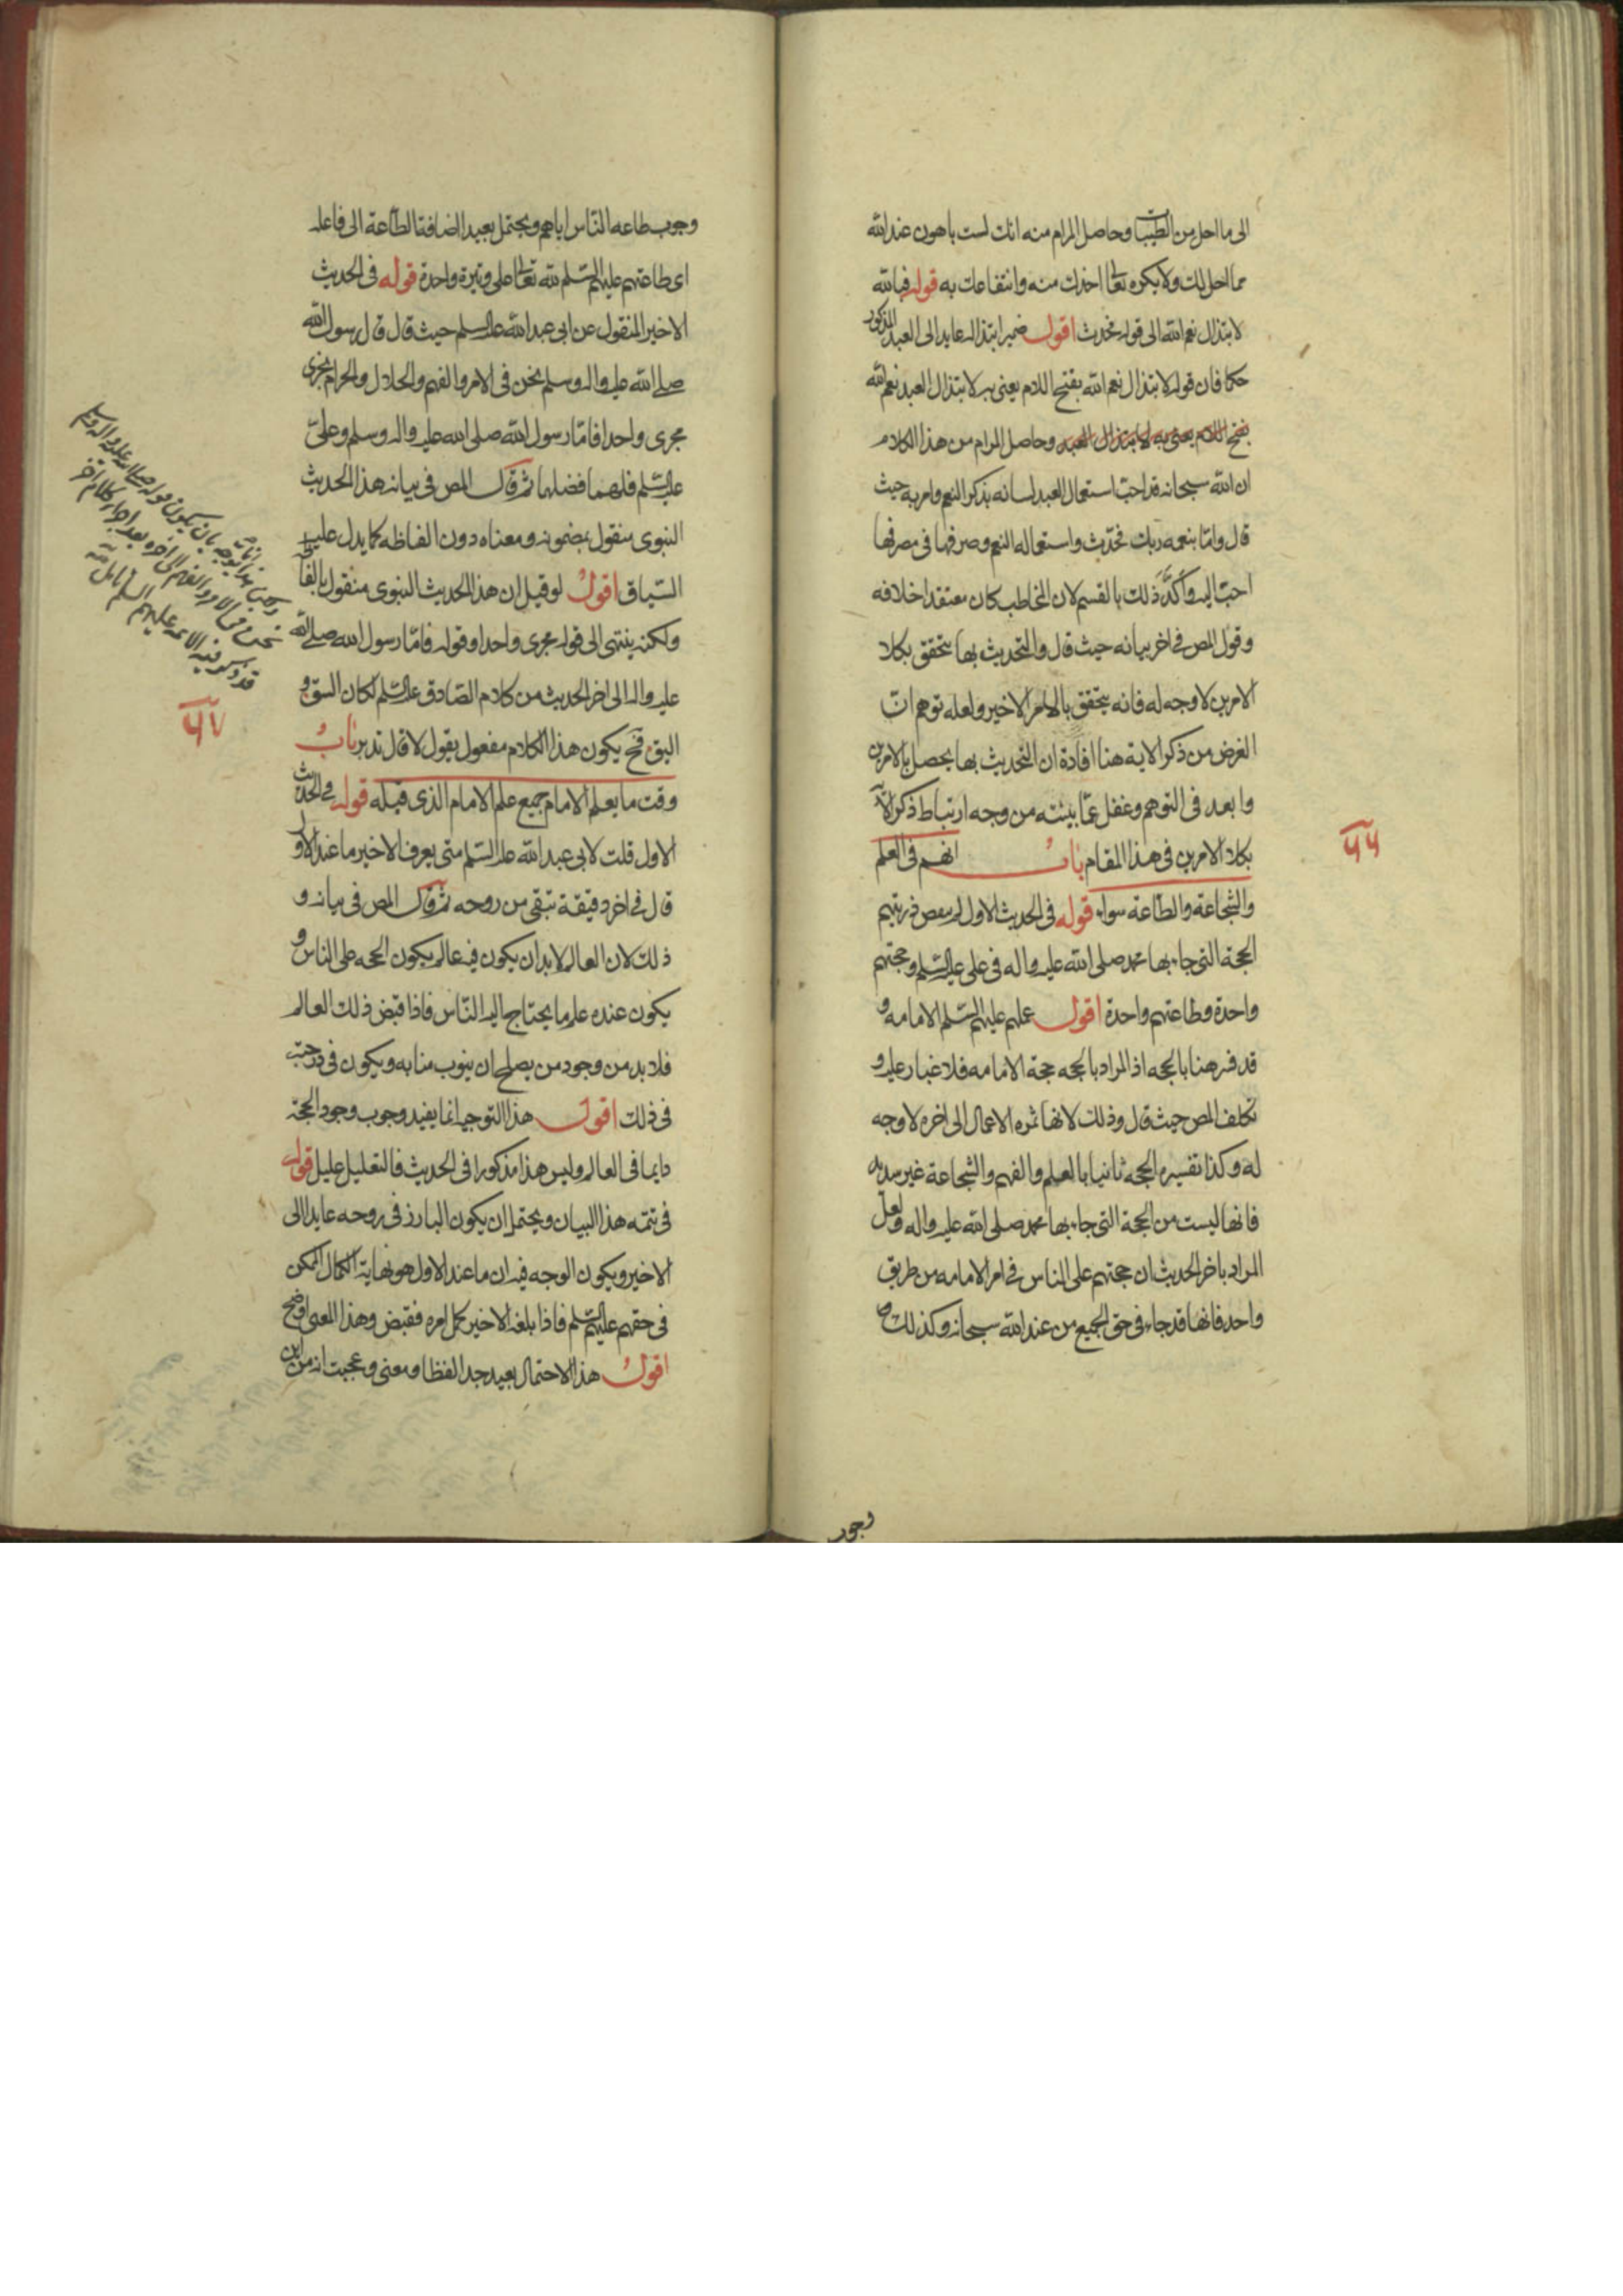 الى ما احل من الطيبات وحاصل المرام منه انك لست باهون عند الله
مما احل لك ولا يكره تعالى اخذك منه وانتفاعك به قوله فبالله
لابتذال نعم الله الى قوله فحدث اقول ضمير ابتذاله عايد الى العبد المذكور
حكما فان قوله لابتذال نعم الله بفتح اللام يعنى به لابتذال العبد نعم الله
بفتح اللام يعنى به لابتذال العبد وحاصل المرام من هذا الكلام
ان الله سبحانه قد احب استعمال العبد لسانه بذكر النعم وامر به حيث
قال واما بنعمه ربك فحدث واستعماله النعم وصرفها فى مصرفها
احب اليه واكد ذلك بالقسم لان المخاطب كان معتقدا خلافه
وقول المص فى اخر بيانه حيث قال والتحديث بها يتحقق بكلا
الامرين لا وجه له فانه يتحقق بالامر الاخير ولعله توهم ان
الغرض من ذكر الاية هنا افادة ان التحديث بها يحصل بالامرين
وابعد فى التوهم وغفل عما بينته من وجه ارتباط ذكر الآية
بكلا الامرين فى هذا المقام باب انهم فى العلم
والشجاعة والطاعة سواء قوله فى الحديث الاول ذريتهم
الحجة التى جاء بها محمد صلى الله عليه واله فى على عليه السلم وحجتهم
واحدة وطاعتهم واحدة اقول عليهم السلم الامامه و
قد فسر هنا بالحجه اذ المراد بالحجه حجة الامامه فلا غبار عليه و
تكلف المص حيث قال وذلك لانها ثمره الاعمال الى اخره لا وجه
له وكذا تفسيره الحجه ثانيا بالعلم والفهم والشجاعة غير سديد
فانها ليست من الحجة التى جاء بها محمد صلى الله عليه واله ولعل
المراد باخر الحديث ان حجتهم على الناس فى امر الامامه من طريق
واحد فانها قد جاء فى حق الجميع من عند الله سبحانه وكذلك
وجوب
۶۶
وجوب طاعه الناس اياهم ويحتمل بعيدا اضافة الطاعة الى فاعله
اى طاعتهم عليهم السلم لله تعالى على وتيرة واحدة قوله فى الحديث
الاخير المنقول عن ابى عبد الله عليه السلم حيث قال قال رسول الله
صلى الله عليه واله وسلم نحن فى الامر والفهم والحلال والحرام نجرى
مجرى واحدا فاما رسول الله صلى الله عليه واله وسلم وعلىّ
عليه السلم فلهما فضلهما ثم قال المص فى بيانه هذا الحديث
النبوى منقول بمضمونه ومعناه دون الفاظه كما يدل عليه
السياق اقول لو قيل ان هذا الحديث النبوى منقول بالفاظه
ولكنه ينتهى الى قوله مجرى واحدا وقوله فاما رسول الله صلى الله
عليه واله الى اخر الحديث من كلام الصادق عليه السلم لكان السوق
اليق فح يكون هذا الكلام مفعول يقول لا قال تدبر باب
وقت ما يعلم الامام جميع علم الامام الذى قبله قوله فى الحديث
الاول قلت لابى عبد الله عليه السلم متى يعرف الاخير ما عند الاول
قال فى اخر دقيقة تبقى من روحه ثم قال المص فى بيانه و
ذلك لان العالم لابد ان يكون فيه عالم يكون الحجه على الناس و
يكون عنده علم ما يحتاج اليه الناس فاذا قبض ذلك العالم
فلا بد من وجود من يصلح ان ينوب منابه ويكون فى درجته
فى ذلك اقول هذا التوجيه انما يفيد وجوب وجود الحجة
دايما فى العالم وليس هذا مذكورا فى الحديث فالتعليل عليل قوله
فى تتمه هذا البيان ويحتمل ان يكون البارز فى روحه عايدا الى
الاخير ويكون الوجه فيه ان ما عند الاول هو نهاية الكمال الممكن
فى حقهم عليهم السلم فاذا بلغه الاخير كمل امره فقبض وهذا المعنى اوضح
اقول هذا الاحتمال بعيد جدا لفظا ومعنى وعجبت انه من اين
بان يكون قوله صلى الله عليه واله وسلم
نحن فى الامر والفهم الى اخره بعد اجراء كلام اخر
قد ذكر فيه الائمه عليهم السلم تامل منه
۶۷